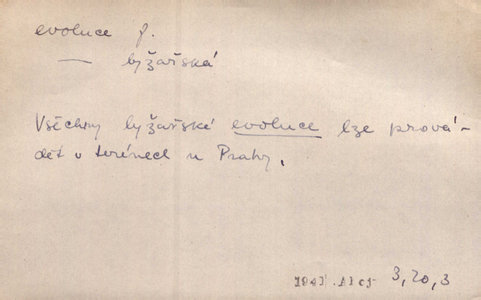 evoluce f.
— lyžařská
Všechny lyžařské evoluce lze prová-
dět v terénech u Prahy.
3,20,3